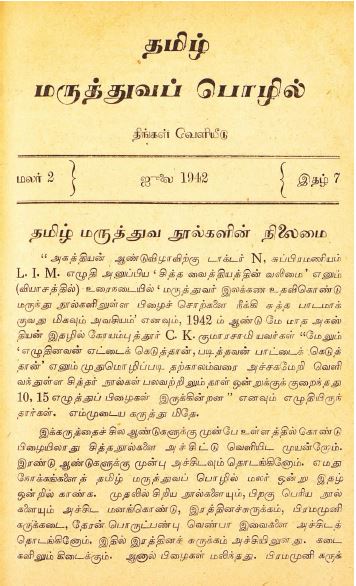 தமிழ்
மருத்துவப் பொழில்
திங்கள் வெளியீடு
மலர் 2 } ஜுலை 1942 { இதழ் 7
தமிழ் மருத்துவ நூல்களின் நிலைமை
“ அகத்தியன் ஆண்டுவிழாவிற்கு டாக்டர் N, சுப்பிரமணியம்
L. I. M. எழுதி அனுப்பிய ‘ சித்த வைத்தியத்தின் வலிமை’ எனும்
(வியாசத்தில்) உரைநடையில் ‘ மருத்துவர் இலக்கண உதவிகொண்டு
மருந்து நூல்களிலுள்ள பிழைச் சொற்களை நீக்கி சுத்த பாடமாக்
குவது மிகவும் அவதியம்’ எனவும், 1942 ம் ஆண்டு மே மாத அகஸ்
தியன் இதழில் கோயம்புத்தூர் C. K. குமாரசாமி யவர்கள் “மேலும்
‘எழுதினவன் ஏட்டைக் கெடுத்தான், படித்தவன் பாட்டைக் கெடுத்
தான்’ எனும் முதுமொழிப்படி தற்காலம்வரை அச்சகமேறி வெளி
வந்துள்ள சித்தர் நூல்கள் பலவற்றிலும் தாள் ஒன்றுக்குக்குறைந்தது
10, 15 எழுத்துப் பிழைகள் இருக்கின்றன” எனவும் எழுதியிருந்
தார்கள். எம்முடைய கருத்து மிதே.
இக்கருத்தைச் சில ஆண்டுகளுக்கு முன்பே உள்ளத்தில் கொண்டு
பிழையிலாது சித்தநூல்களை அச்சிட்டு வெளியிட முயன்றோம்.
இரண்டு ஆண்டுகளுக்கு முன்பு அச்சிடவும் தொடங்கினோம். எமது
நோக்கங்களைத் தமிழ் மருத்துவப் பொழில் மலர் ஒன்று இதழ்
ஒன்றில் காண்க. முதலில் சிறிய நூல்களையும், பிறகு பெரிய நூல்
களையும் அச்சிட மனங்கொண்டு, இரத்தினச்சுருக்கம், பிரமமுனி
கருக்கடை, தேரன் பொருட்பண்பு வெண்பா இவைகளை அச்சிடத்
தொடங்கினோம். இதில் இரத்தினச் சுருக்கம் அச்சியிலுளது. கடை
களிலும் கிடைக்கும். ஆனால் பிழைகள் மலிந்தது. பிரமமுனி கருக்